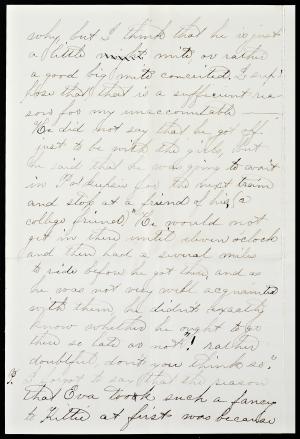 why, but I think that he is just
a little might mite or rather
a good big mite conceited. I sup-
pose that that is a sufficient rea-
son for my unaccountable —
"He did not say that he got off
just to be with the girls, but
he said that he was going to wait
in Po'keepsie for the next train
and stop at a friend of his (a
college friend)." He would not
get in there until eleven o'clock
and then had a several miles
to ride before he got there, and as
he was not very well acquainted
with them, he didn't exactly
know whether he ought to go
there so late as not"! rather
doubtful, don't you think so?
to say that the reason
that Eva took such a fancy
to Kittie at first was because